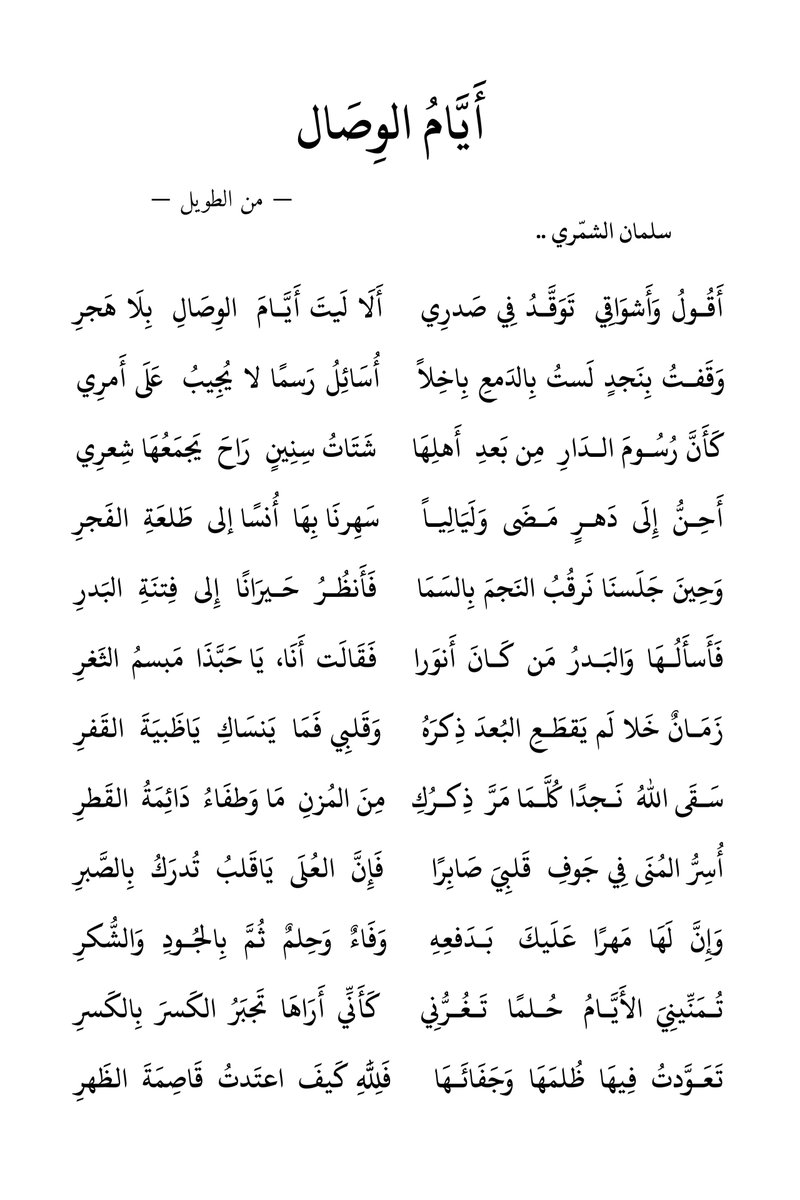 أَيَّامُ الوِصَال
— من الطويل —
سلمان الشمّري ..
أَقُـولُ وَأَشوَاقِي تَوَقَّـدُ فِي صَدرِي أَلَا لَيتَ أَيَّـامَ الوِصَالِ بِلَا هَجرِ
وَقَفـتُ بِنَجدٍ لَستُ بِالدَمعِ بِاخِلاً أُسَائِلُ رَسمًا لا يُجِيبُ عَلَى أَمرِي
كَأَنَّ رُسُـومَ الـدَارِ مِن بَعدِ أَهلِهَا شَتَاتُ سِنِينٍ رَاحَ يَجمَعُهَا شِعرِي
أَحِـنُّ إِلَى دَهـرٍ مَـضَى وَلَيَالِيـاً سَهِرنَا بِهَا أُنسًا إلى طَلعَةِ الفَجرِ
وَحِينَ جَلَسنَا نَرقُبُ النَجمَ بِالسَمَا فَأَنظُـرُ حَـيرَانًا إِلى فِتنَةِ البَدرِ
فَأَسأَلُـهَا وَالبَـدرُ مَن كَـانَ أَنوَرا فَقَالَت أَنَا، يَا حَبَّذَا مَبسمُ الثَغرِ
زَمَـانٌ خَلا لَم يَقطَـعِ البُعدَ ذِكرَهُ وَقَلبِي فَمَا يَنسَاكِ يَاظَبيَةَ القَفرِ
سَـقَى اللهُ نَـجدًا كُلَّـمَا مَرَّ ذِكـرُكِ مِنَ المُزنِ مَا وَطفَاءُ دَائِمَةُ القَطرِ
أُسِرُّ المُنَى فِي جَوفِ قَلبِيَ صَابِرًا فَإِنَّ العُلَى يَاقَلبُ تُدرَكُ بِالصَّبرِ
وَإِنَّ لَهَا مَهرًا عَلَيكَ بَـدَفعِهِ وَفَاءٌ وَحِلمٌ ثُمَّ بِالجُـودِ وَالشُّكرِ
تُـمَنِّينِيَ الأَيَّـامُ حُـلمًا تَـغُـرُّنِي كَأَنِّي أَرَاهَا تَجبَرُ الكَسرَ بِالكَسرِ
تَعَـوَّدتُ فِيهَا ظُلمَهَا وَجَفَائَـهَا فَلِلَّهِ كَيفَ اعتَدتُ قَاصِمَةَ الظَهرِ